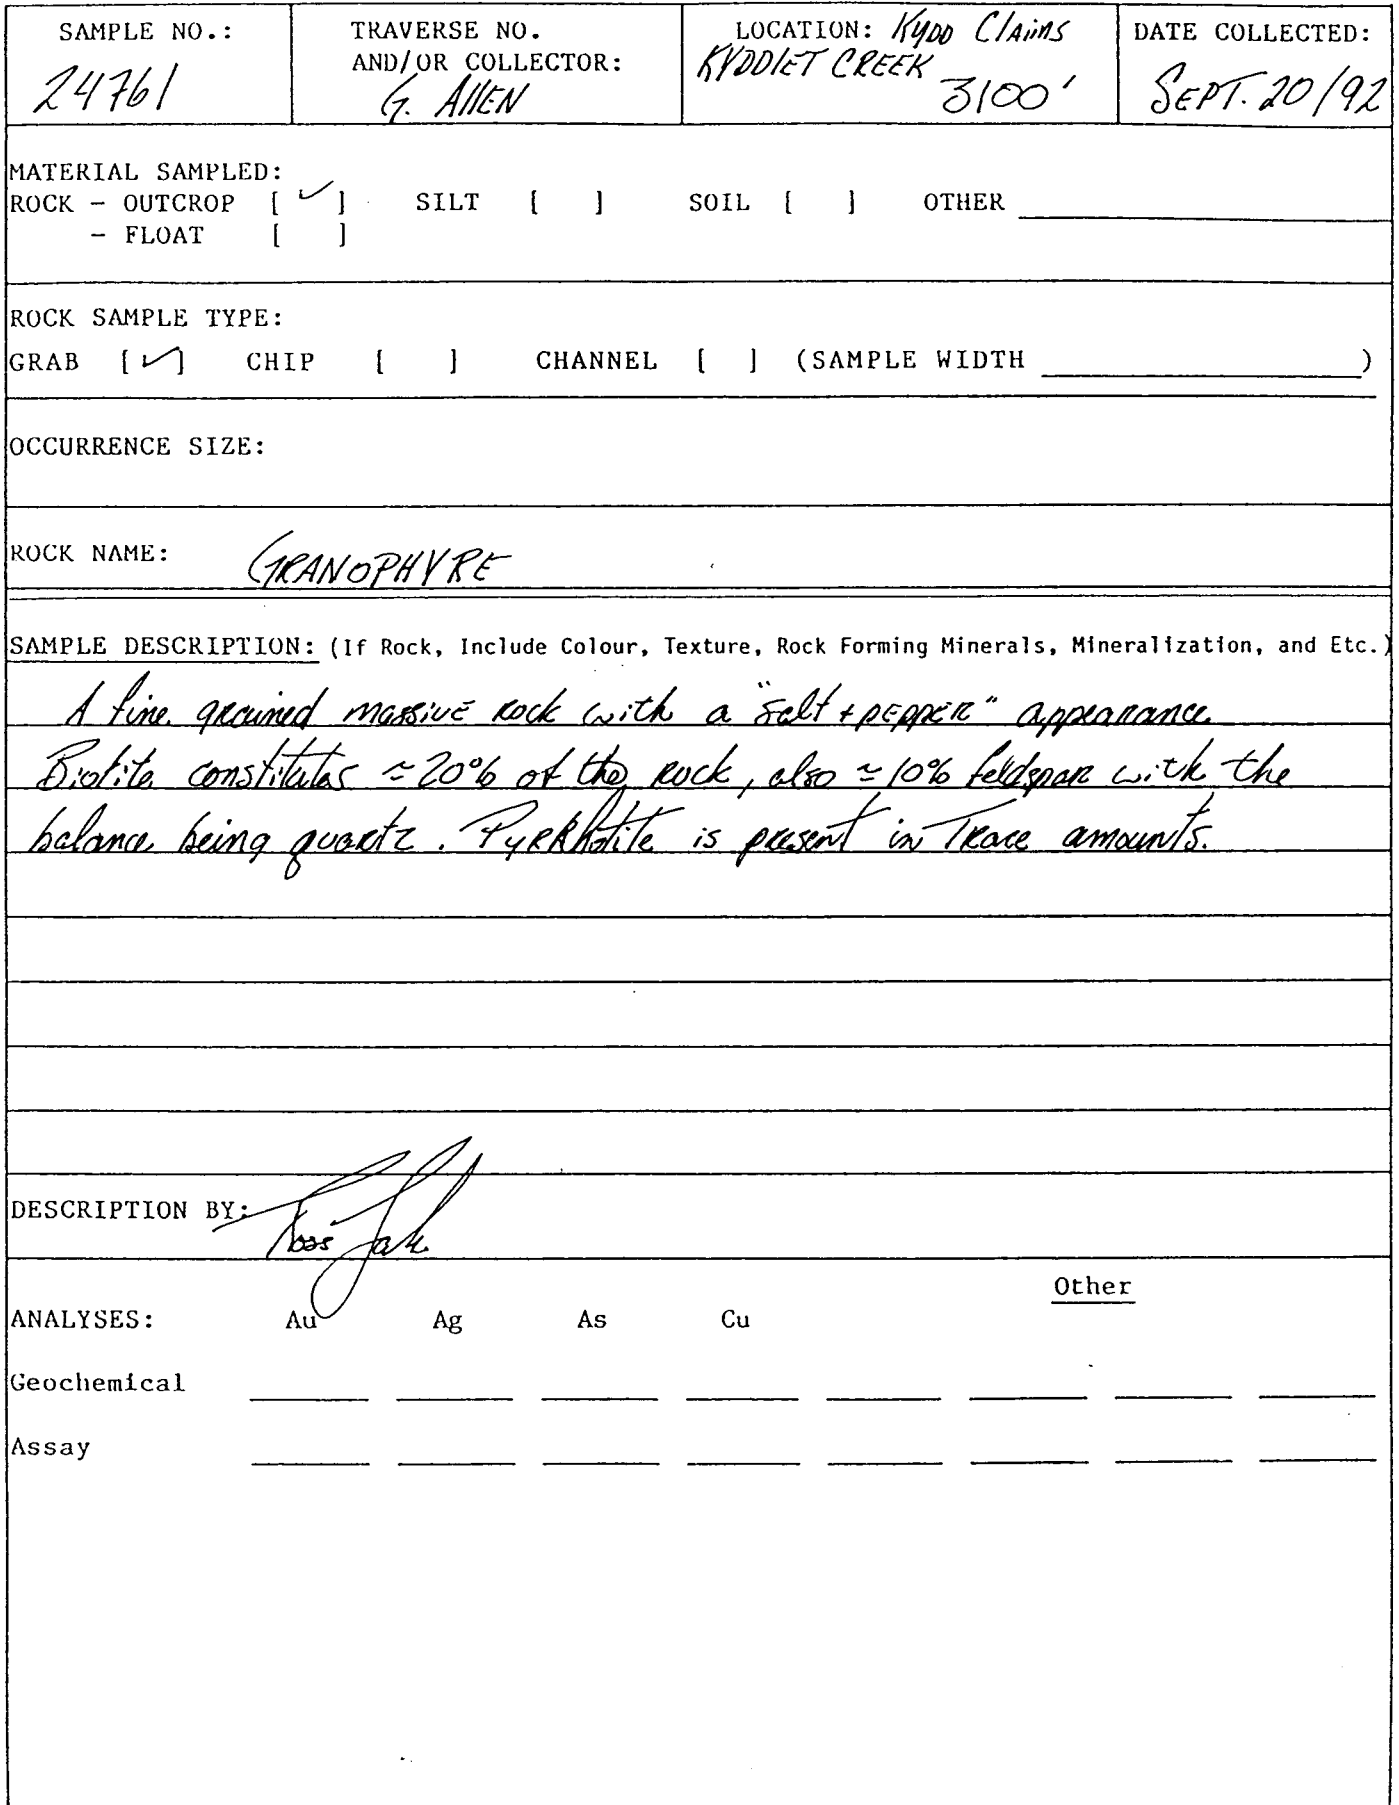 SAMPLE NO.: TRAVERSE NO. LOCATION: Kydd Claims DATE COLLECTED:
AND/OR COLLECTOR: KYDDIET CREEK
24761 G. Allen 3100' SEPT. 20/92
MATERIAL SAMPLED:
ROCK - OUTCROP [ ✓ ] SILT [ ] SOIL [ ] OTHER
- FLOAT [ ]
ROCK SAMPLE TYPE:
GRAB [ ✓ ] CHIP [ ] CHANNEL [ ] (SAMPLE WIDTH )
OCCURRENCE SIZE:
ROCK NAME: GRANOPHYRE
SAMPLE DESCRIPTION: (If Rock, Include Colour, Texture, Rock Forming Minerals, Mineralization, and Etc.)
A fine grained massive rock with a "salt + pepper" appearance
Biotite constitutes ≃ 20% of the rock, also ≃ 10% feldspar with the
balance being quartz. Pyrrhotite is present in Trace amounts.
DESCRIPTION BY:
Other
ANALYSES: Au Ag As Cu
Geochemical
Assay